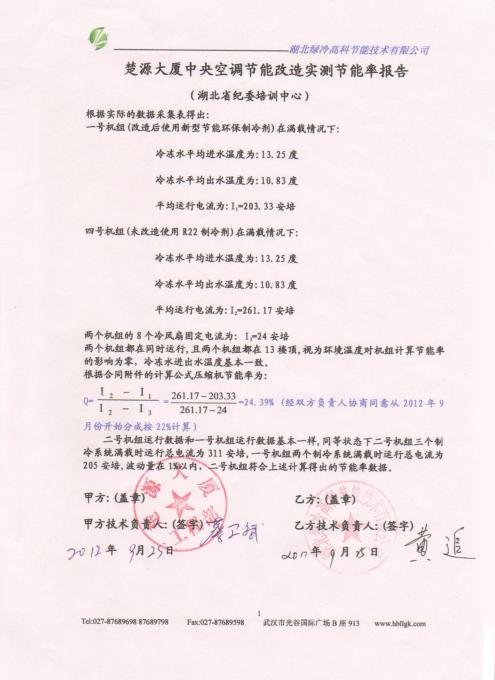 湖北绿冷高科节能技术有限公司
楚源大厦中央空调节能改造实测节能率报告
（湖北省纪委培训中心）
根据实际的数据采集表得出：
一号机组(改造后使用新型节能环保制冷剂)在满载情况下：
冷冻水平均进水温度为：13.25 度
冷冻水平均出水温度为：10.83 度
平均运行电流为：I₁=203.33 安培
四号机组(未改造使用 R22 制冷剂)在满载情况下：
冷冻水平均进水温度为：13.25 度
冷冻水平均出水温度为：10.83 度
平均运行电流为：I₂=261.17 安培
两个机组的 8 个冷风扇固定电流为： I₃=24 安培
两个机组都在同时运行，且两个机组都在 13 楼顶，视为环境温度对机组计算节能率
的影响为零，冷冻水进出水温度基本一致。
根据合同附件的计算公式压缩机节能率为：
Q=(I₂－I₁)/(I₂－I₃)=(261.17－203.33)/(261.17－24)=24.39% (经双方负责人协商同意从 2012 年 9
月份开始分成按 22%计算)
二号机组运行数据和一号机组运行数据基本一样，同等状态下二号机组三个制
冷系统满载时运行总电流为 311 安培，一号机组两个制冷系统满载时运行总电流为
205 安培，波动量在 1%以内，二号机组符合上述计算得出的节能率数据。
甲方：(盖章) 乙方：(盖章)
甲方技术负责人：(签字) 乙方技术负责人：(签字)
2012 年 9月25日 2012 年 9 月 25 日
楚源大厦
工程部
1
Tel:027-87689698 87689798 Fax:027-87689598 武汉市光谷国际广场 B 座 913 www.hbllgk.com